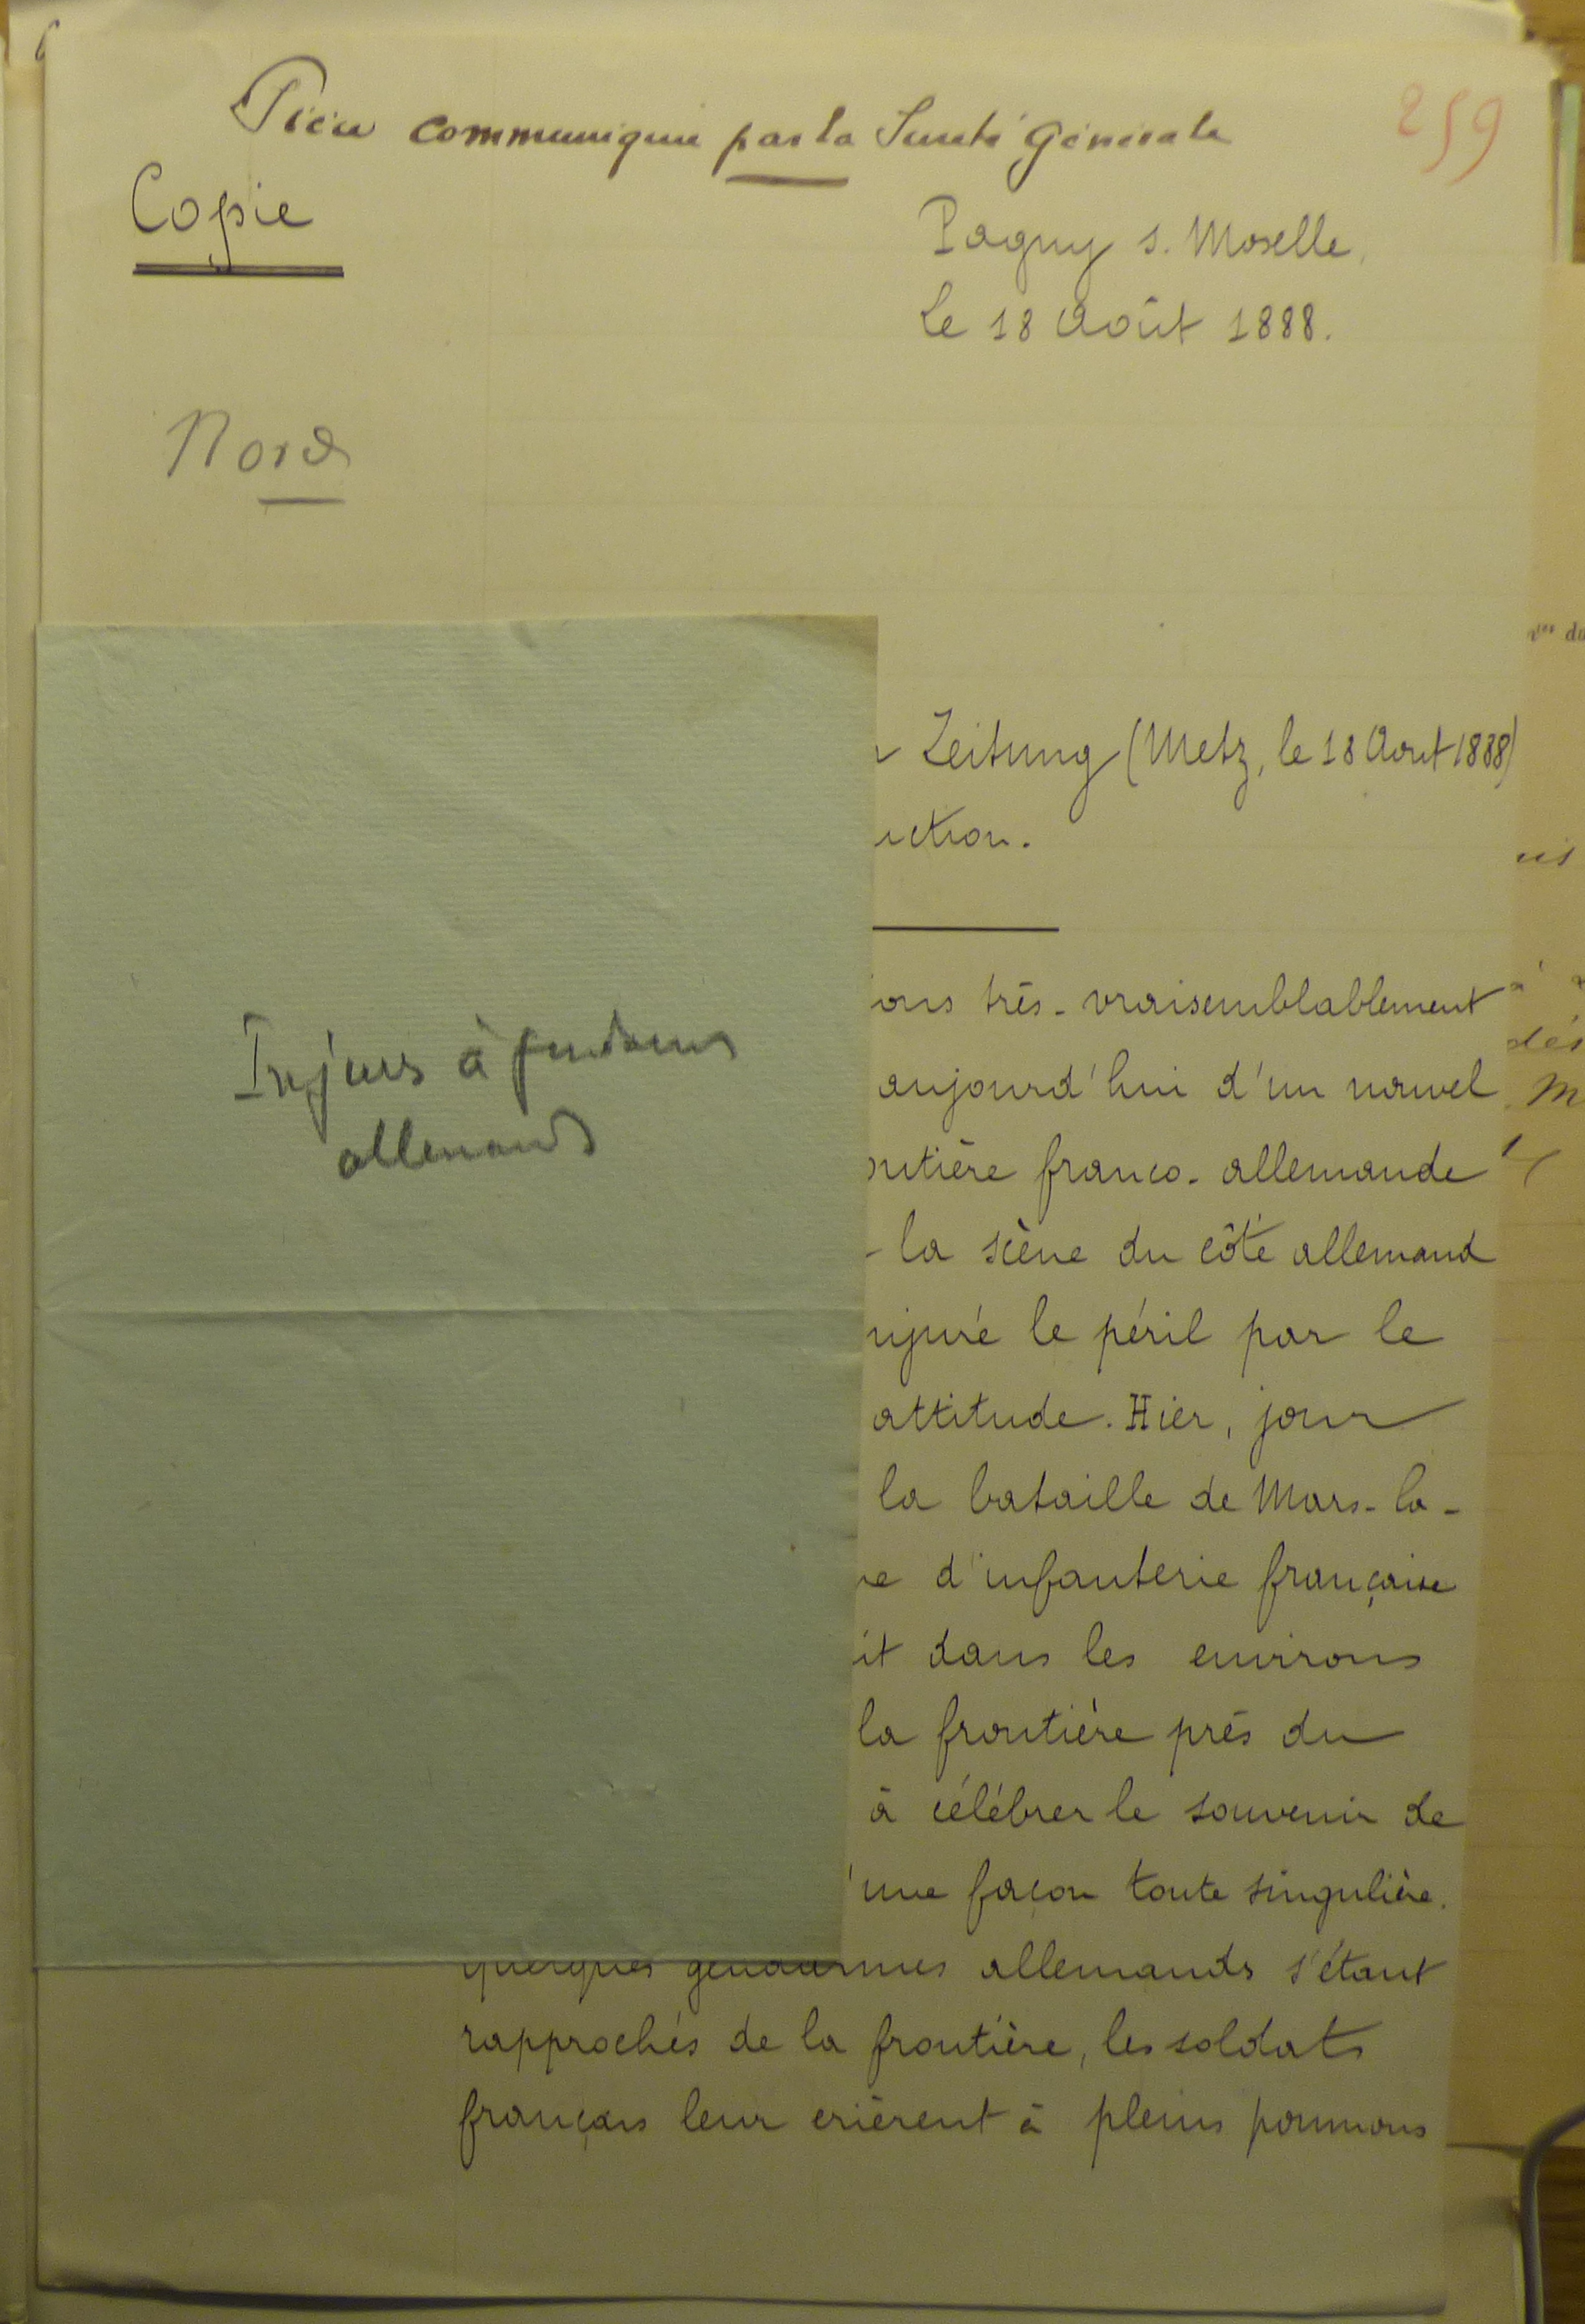 259
Pièce communiquée par la Sureté Générale
Copie
Pagny s. Moselle,
Le 18 Août 1888.
Nord
Zeitung (Metz, le 18 Aout 1888)
uction.
ions très-vraisemblablement
aujourd'hui d'un nouvel
ontière franco-allemande
la scène du côté allemand
njuré le péril par le
attitude. Hier, jour
la bataille de Mars-la-
d'infanterie française
it dans les environs
la frontière près du
à célébrer le souvenir de
'une façon toute singulière.
quelques gendarmes allemands s'étant
rapprochés de la frontière, les soldats
français leur crièrent à pleins poumons
Injures à gendarmes
allemands